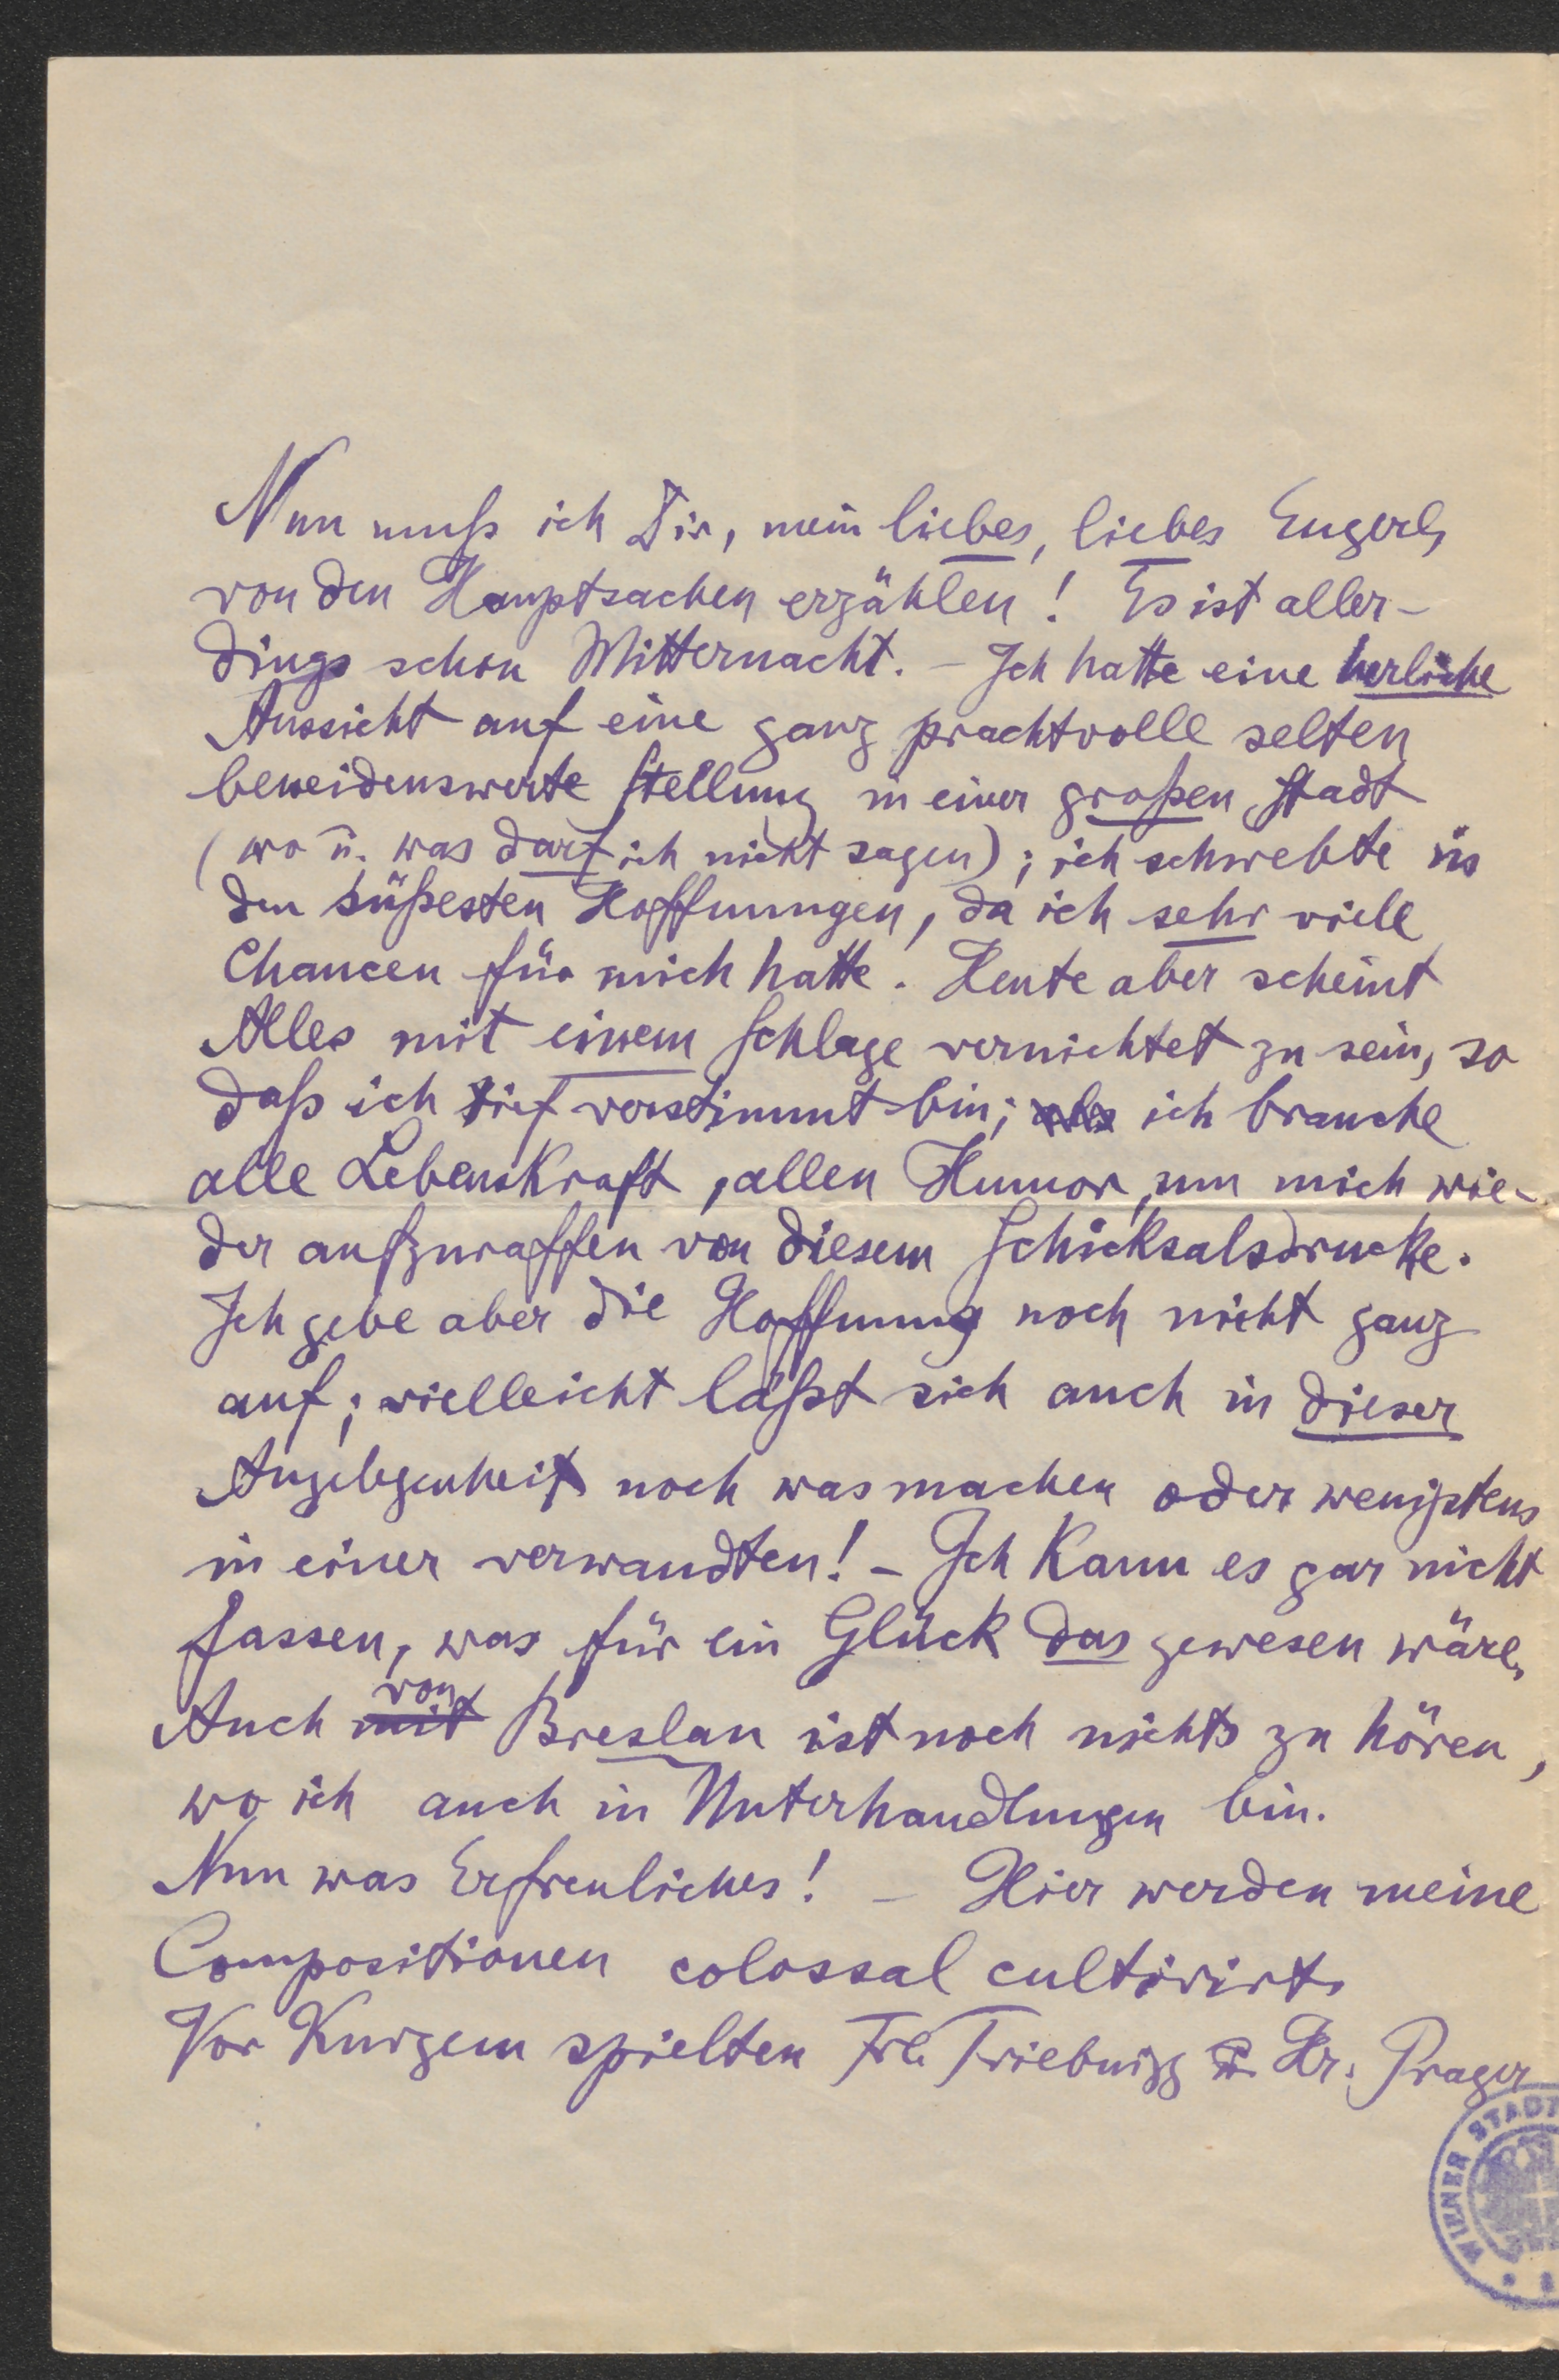 Nun muß ich Dir, mein liebes, liebes Eugerl,
von den Hauptsachen erzählen! Es ist aller-
dings schon Mitternacht. – Ich hatte eine herliche
Aussicht auf eine ganz prachtvolle selten
beneidenswerte Stellung in einer großen Stadt
(wo u. was darf ich nicht sagen); ich schwebte in
den süßesten Hoffnungen, da ich sehr viele
Chancen für mich hatte. Heute aber scheint
Alles mit einem Schlage vernichtet zu sein, so
daß ich tief verstimmt bin; ich brauche
alle Lebenskraft, allen Humor, um mich wie-
der aufzuraffen von diesem Schicksalsdrucke.
Ich gebe aber die Hoffnung noch nicht ganz
auf; vielleicht läßt sich auch in dieser
Angelegenheit noch was machen oder wenigstens
in einer verwandten! – Ich kann es gar nicht
fassen, was für ein Glück das gewesen wäre,
Auch mit von Breslau ist noch nichts zu hören,
wo ich auch in Unterhandlungen bin.
Nun was Erfreuliches! – Hier werden meine
Compositionen colossal cultivirt.
Vor Kurzem spielten Frl. u. Hr. Prager
WIENER STADT